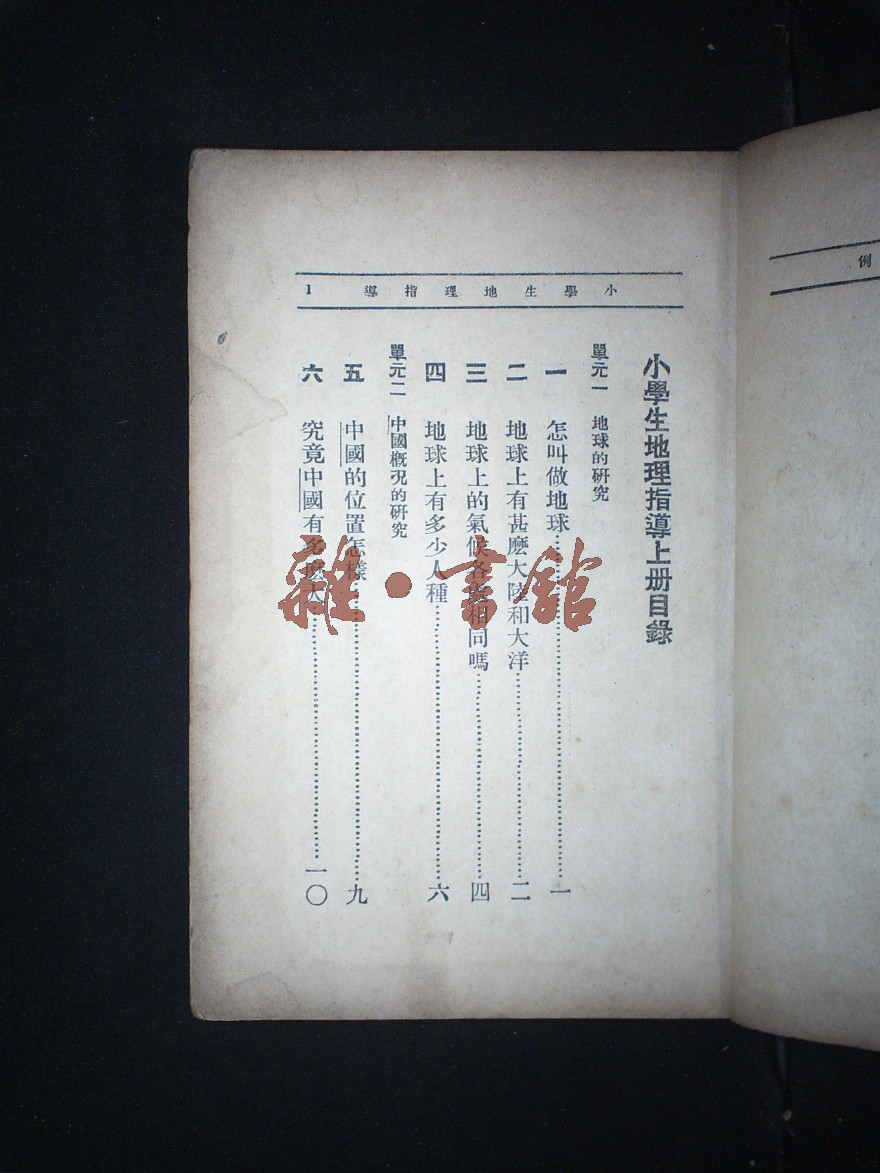 例
小學生地理指導 1
小學生地理指導上册目錄
單元一 地球的研究
一 怎叫做地球……一
二 地球上有甚麽大陸和大洋……二
三 地球上的氣候各處相同嗎……四
四 地球上有多少人種……六
單元二 中國概况的研究
五 中國的位置怎樣……九
六 究竟中國有多麽大……一〇
雜·書館